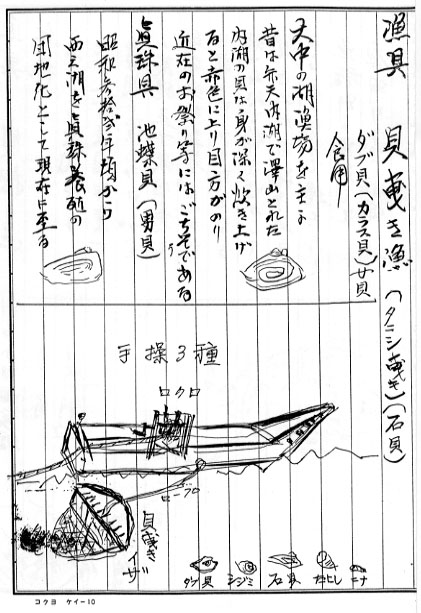 漁具 貝曳き漁 (タニシ曳き)(石貝)
ダブ貝(カラス貝)
食用
大中の湖漁場を主
昔は弁天内湖で澤山とれた
内湖の貝は身が深く炊き上げ
ると赤色に上り目方がのり
近在のお祭り等にはごちそうである
真珠貝 池蝶貝(男貝)
昭和参拾弐年頃から
西之湖を真珠養殖の
団地化として現在に至る
手操3種
ロクロ
ロープ
貝曳き
イザ
ダブ貝
シジミ
石貝
ニナ
コクヨ ケイー10